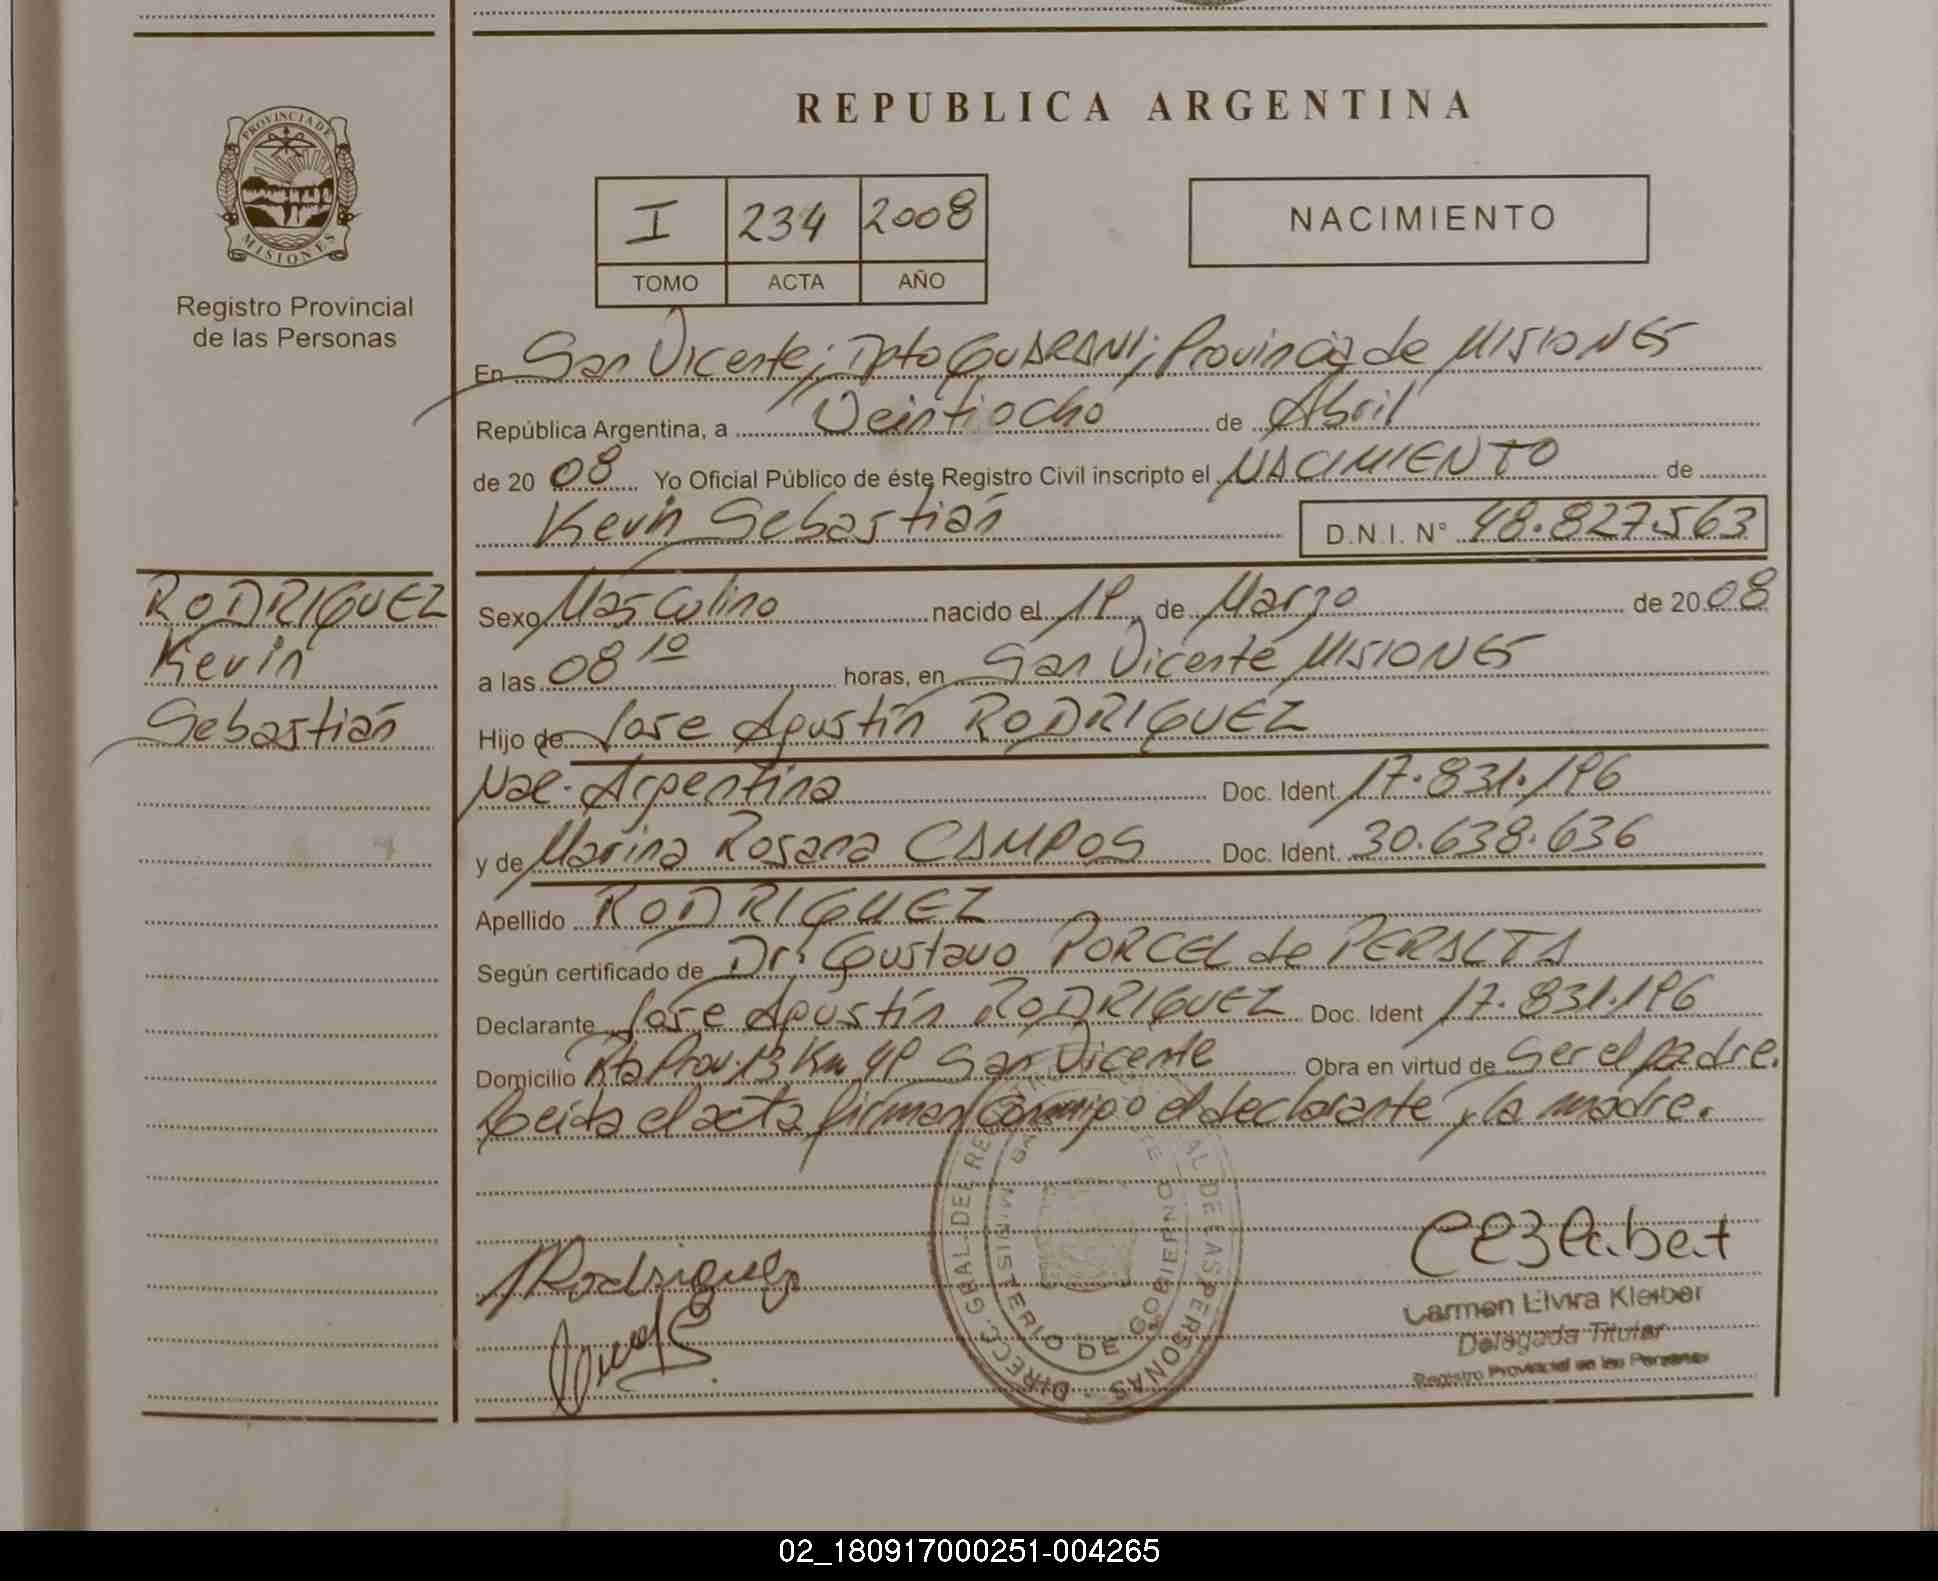 REPUBLICA ARGENTINA
PROVINCIA DE
MISIONES
Registro Provincial
de las Personas
I 234 2008
TOMO ACTA AÑO
NACIMIENTO
En San Vicente; Dpto GUARANI; Provincia de MISIONES
República Argentina, a Veintiocho de Abril
de 2008 Yo Oficial Público de éste Registro Civil inscripto el NACIMIENTO de
Kevin Sebastián D.N.I. N° 48.827.563
RODRIGUEZ
Kevin
Sebastián
Sexo Masculino nacido el 19 de Marzo de 2008
a las 08 10 horas, en San Vicente MISIONES
Hijo de Jose Agustín RODRIGUEZ
Nac. Argentina Doc. Ident. 17.831.196
y de Marina Rosana CAMPOS Doc. Ident. 30.638.636
Apellido RODRIGUEZ
Según certificado de Dr. Gustavo PORCEL de PERALTA
Declarante Jose Agustín RODRIGUEZ Doc. Ident 17.831.196
Domicilio Rta Prov. 13 Km 49 San Vicente Obra en virtud de Ser el padre.
Leída el acta firman conmigo el declarante y la madre.
Rodriguez
Carmen Elvira Kleiber
Delegada Titular
Registro Provincial de las Personas
MINISTERIO DE GOBIERNO
02_180917000251-004265